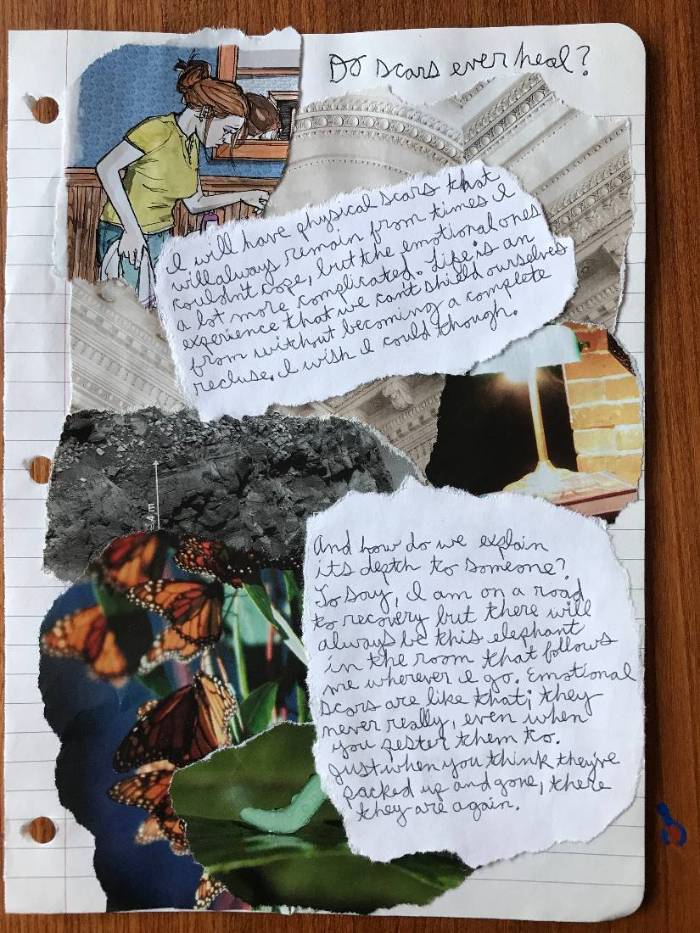 Do scars ever heal?
I will have physical scars that
will always remain from times I
couldn't cope, but the emotional ones
a lot more complicated. Life is an
experience that we can't shield ourselves
from without becoming a complete
recluse. I wish I could though.
And how do we explain
its depth to someone?
To say, I am on a road
to recovery but there will
always be this elephant
in the room that follows
me wherever I go. Emotional
scars are like that; they
never really, even when
you pester them to.
Just when you think they've
packed up and gone, there
they are again.